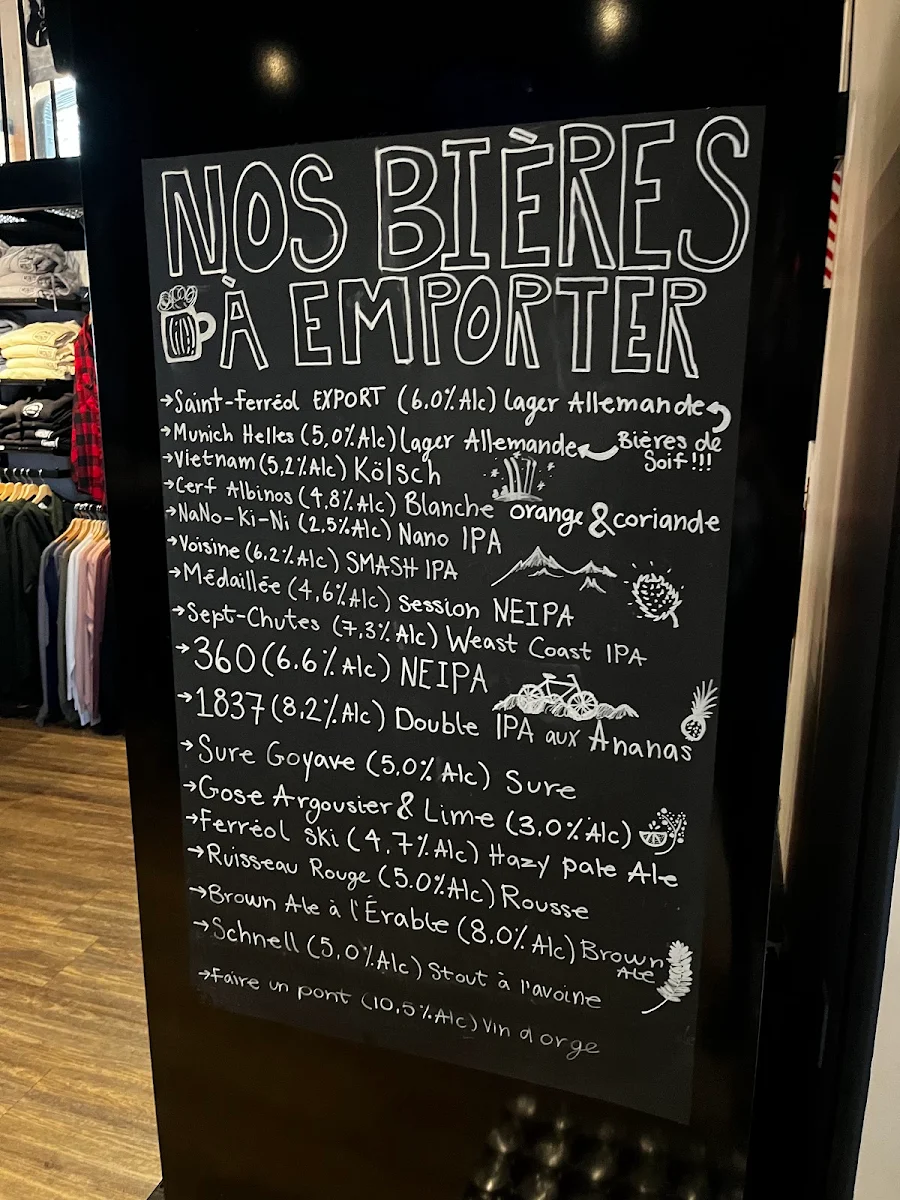 NOS BIÈRES
À EMPORTER
→Saint-Ferréol EXPORT (6.0% Alc) Lager Allemande
→Munich Helles (5,0% Alc) Lager Allemande
Bières de
Soif!!!
→Vietnam (5,2% Alc) Kölsch
→Cerf Albinos (4,8% Alc) Blanche orange & coriande
→NaNo-Ki-Ni (2,5% Alc) Nano IPA
→Voisine (6.2% Alc) SMASH IPA
→Médaillée (4,6% Alc) Session NEIPA
→Sept-Chutes (7,3% Alc) Weast Coast IPA
→360 (6.6% Alc) NEIPA
→1837 (8,2% Alc) Double IPA aux Ananas
→Sure Goyave (5,0% Alc) Sure
→Gose Argousier & Lime (3,0% Alc)
→Ferréol Ski (4,7% Alc) Hazy pale Ale
→Ruisseau Rouge (5.0% Alc) Rousse
→Brown Ale à l'Érable (8,0% Alc) Brown
Ale
→Schnell (5,0% Alc) Stout à l'avoine
→Faire un pont (10,5% Alc) Vin d orge